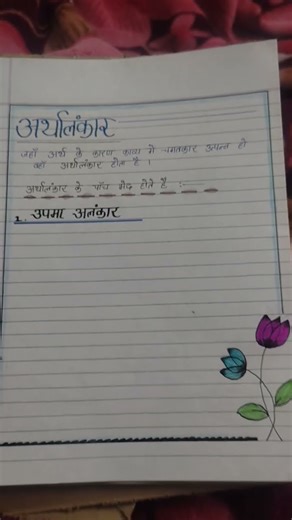 अर्थालंकार
जहाँ अर्थ के कारण काव्य में चमत्कार उत्पन्न हो
वहां अर्थालंकार होता है ।
अर्थालंकार के पाँच भेद होते है :-
1. उपमा अलंकार